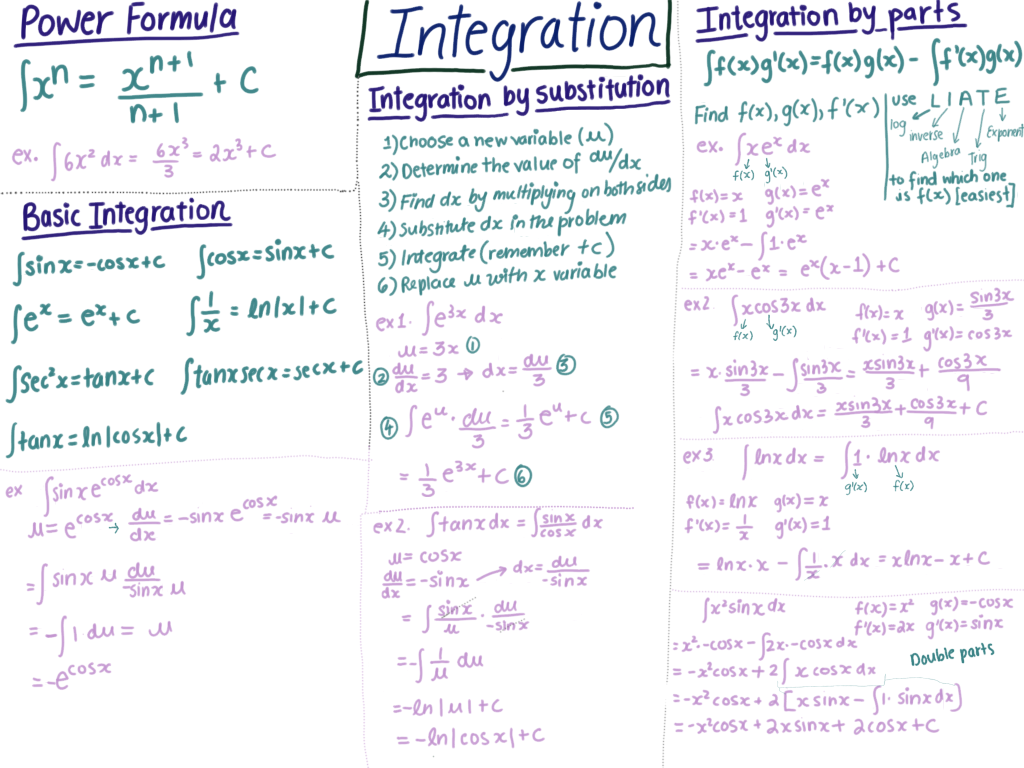 Power Formula
∫xⁿ = xⁿ⁺¹/n+1 + C
ex. ∫6x² dx = 6x³/3 = 2x³ + C
Basic Integration
∫sinx = -cosx + C
∫cosx = sinx + C
∫eˣ = eˣ + C
∫1/x = ln|x| + C
∫sec²x = tanx + C
∫tanx secx = secx + C
∫tanx = ln|cosx| + C
ex ∫sinx e^cosx dx
u = e^cosx → du/dx = -sinx e^cosx = -sinx u
= ∫sinx u du/-sinx u
= -∫1 du = u
= -e^cosx
Integration
Integration by substitution
1) Choose a new variable (u)
2) Determine the value of du/dx
3) Find dx by multiplying on both sides
4) Substitute dx in the problem
5) Integrate (remember +c)
6) Replace u with x variable
ex1. ∫e^3x dx
u = 3x ①
② du/dx = 3 → dx = du/3 ③
④ ∫eᵘ · du/3 = 1/3 eᵘ + c ⑤
= 1/3 e^3x + C ⑥
ex2. ∫tanx dx = ∫sinx/cosx dx
u = cosx
du/dx = -sinx → dx = du/-sinx
= ∫sinx/u · du/-sinx
= -∫1/u du
= -ln|u| + C
= -ln|cosx| + C
Integration by parts
∫f(x)g'(x) = f(x)g(x) - ∫f'(x)g(x)
Find f(x), g(x), f'(x)
use LIATE
log
inverse
Algebra
Trig
Exponent
to find which one
is f(x) [easiest]
ex. ∫xeˣ dx
f(x) g'(x)
f(x) = x g(x) = eˣ
f'(x) = 1 g'(x) = eˣ
= x·eˣ - ∫1·eˣ
= xeˣ - eˣ = eˣ(x-1) + C
ex2. ∫xcos3x dx
f(x) g'(x)
f(x) = x g(x) = sin3x/3
f'(x) = 1 g'(x) = cos3x
= x·sin3x/3 - ∫sin3x/3 = xsin3x/3 + cos3x/9
∫xcos3x dx = xsin3x/3 + cos3x/9 + C
ex3 ∫lnx dx = ∫1·lnx dx
g'(x) f(x)
f(x) = lnx g(x) = x
f'(x) = 1/x g'(x) = 1
= lnx·x - ∫1/x·x dx = xlnx - x + C
∫x²sinx dx
f(x) = x² g(x) = -cosx
f'(x) = 2x g'(x) = sinx
= x²·-cosx - ∫2x·-cosx dx
= -x²cosx + 2∫x cosx dx
Double parts
= -x²cosx + 2[x sinx - ∫1·sinx dx]
= -x²cosx + 2x sinx + 2cosx + C